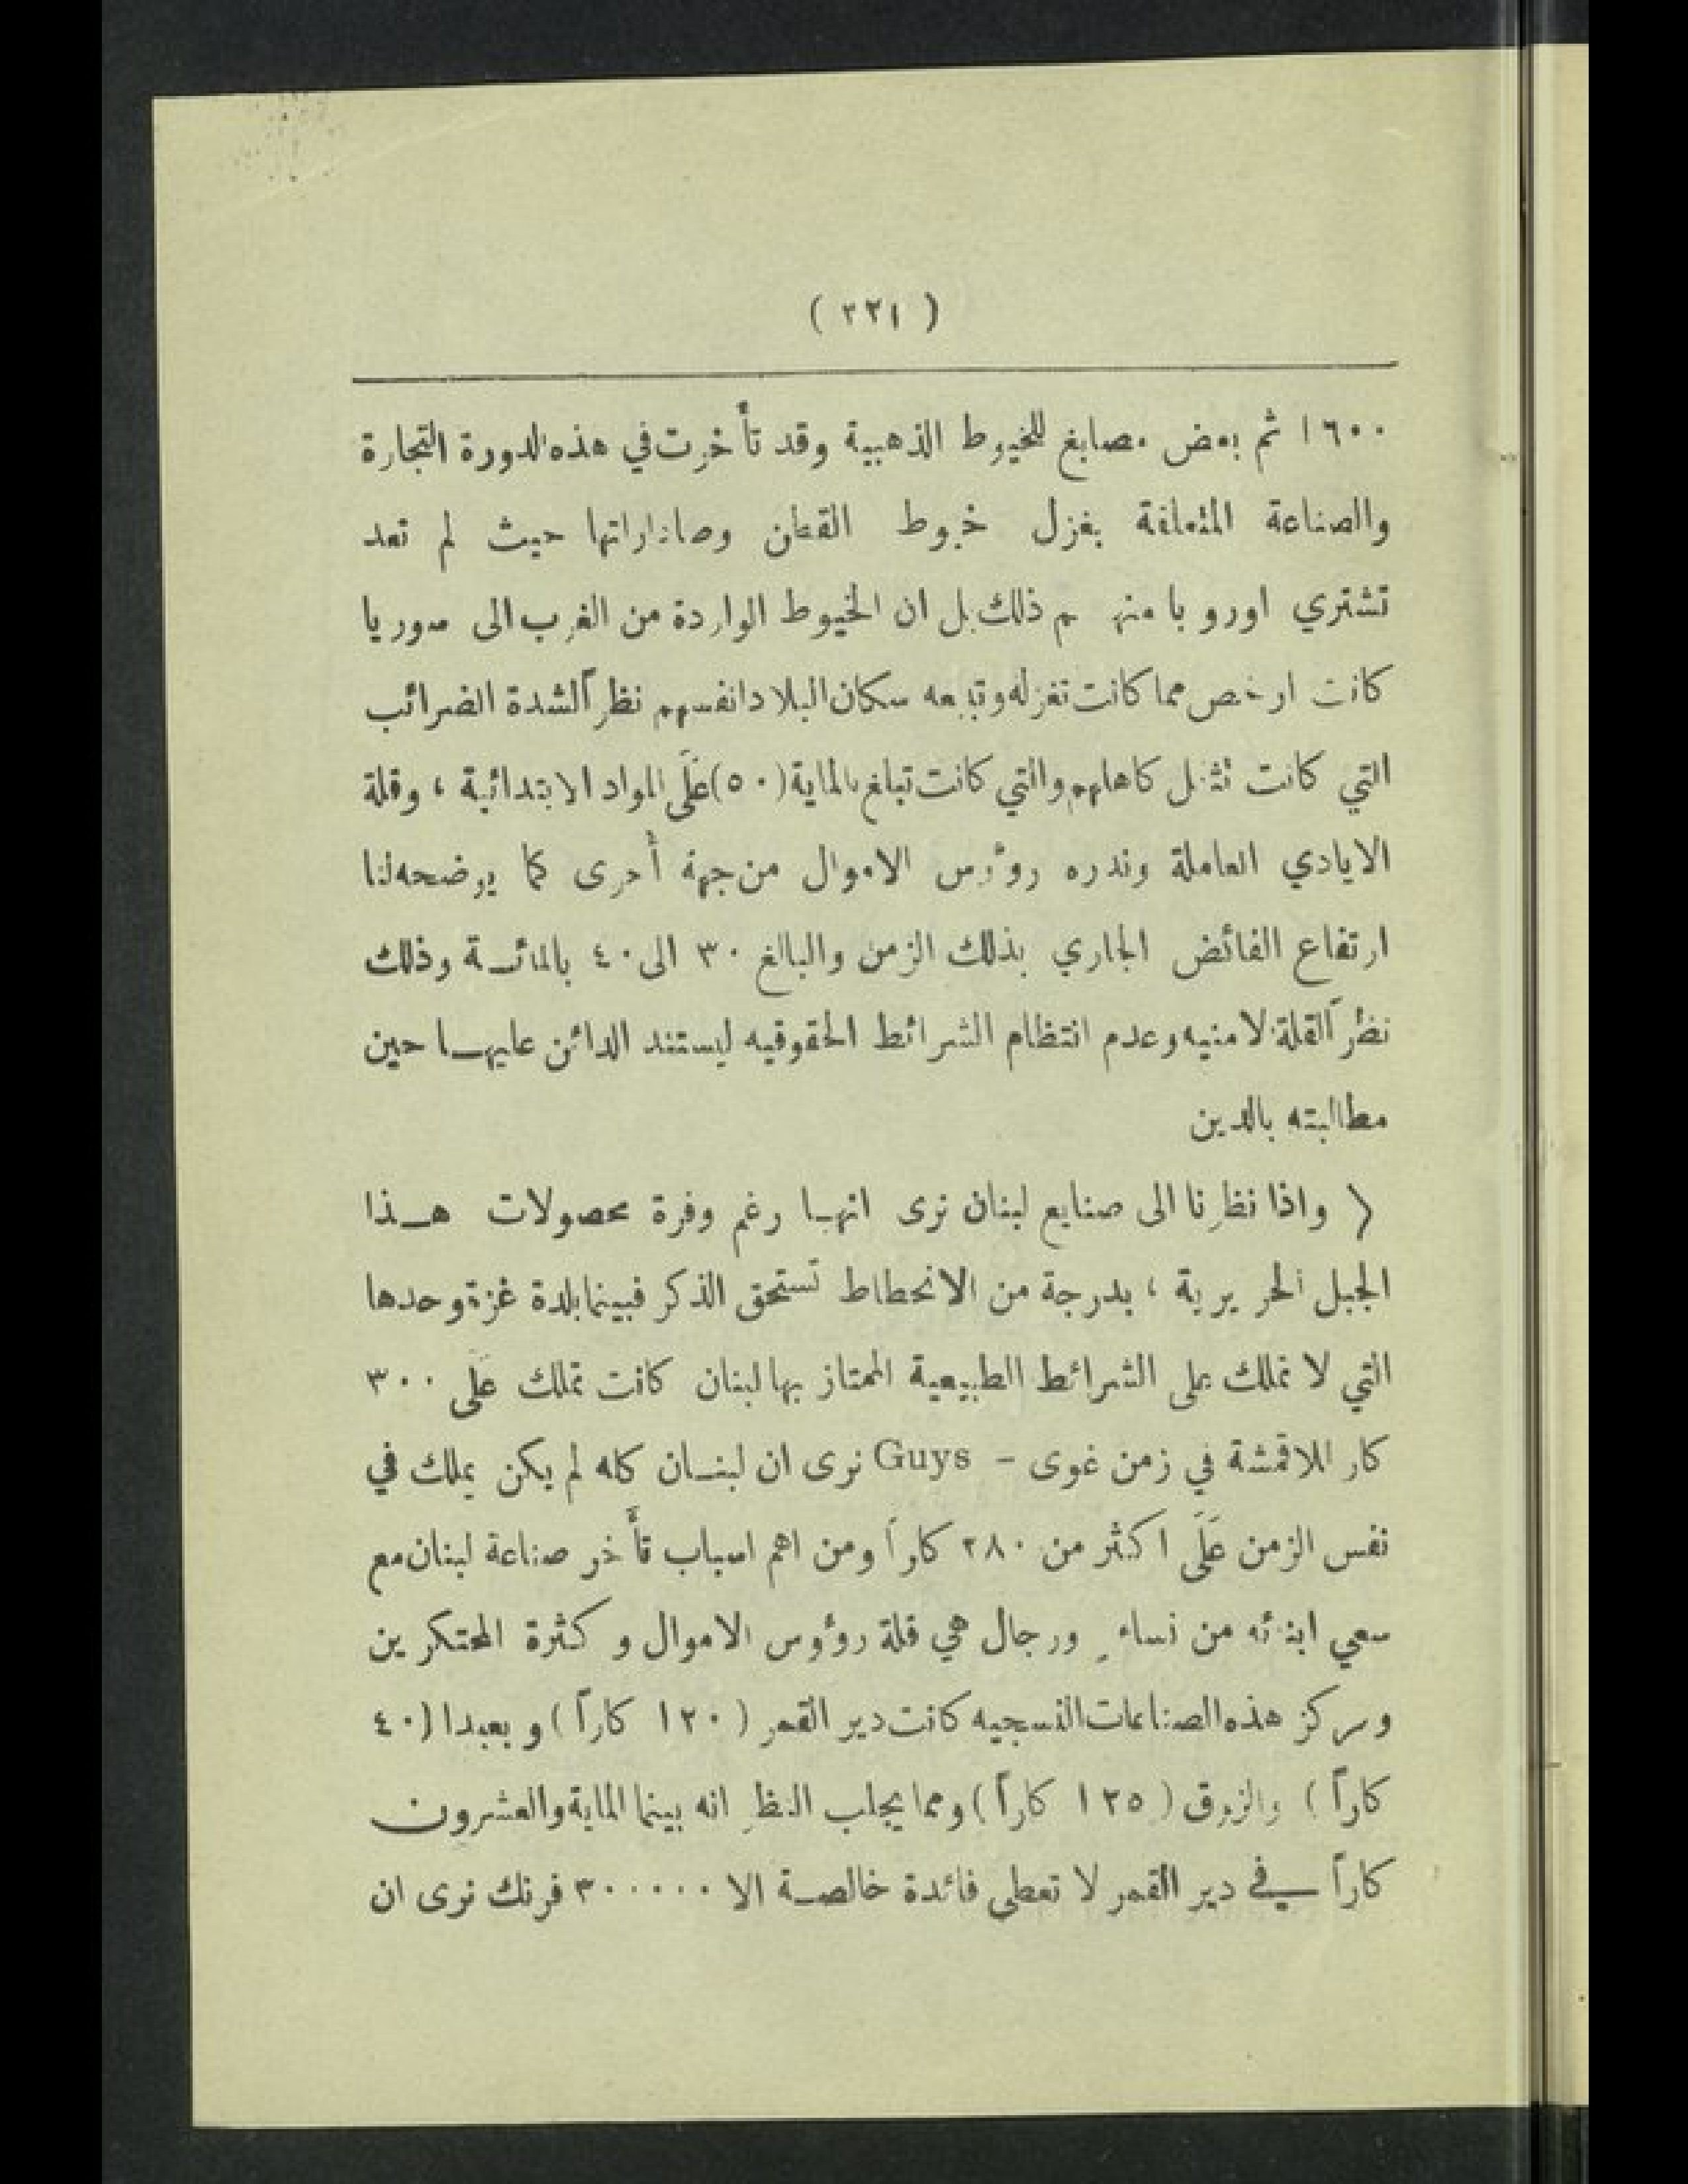 ( ٢٢١ )
١٦٠٠ ثم بعض مصابغ للخيوط الذهبية وقد تأخرت في هذه الدورة التجارة
والصناعة المتعلقة بغزل خيوط القطن وصادراتها حيث لم تعد
تشتري اوروبا منهم ذلك بل ان الخيوط الواردة من الغرب الى سوريا
كانت ارخص مما كانت تغزله وتبيعه سكان البلاد انفسهم نظراً لشدة الضرائب
التي كانت تثقل كاهلهم والتي كانت تبلغ بالماية (٥٠) عَلَى المواد الابتدائية ، وقلة
الايادي العاملة وندره رؤوس الاموال من جهة أخرى كما يوضحه لنا
ارتفاع الفائض الجاري بذلك الزمن والبالغ ٣٠ الى ٤٠ بالمائـة وذلك
نظراً لقلة الامنيه وعدم انتظام الشرائط الحقوقيه ليستند الدائن عليهـا حين
مطالبته بالدين
( واذا نظرنا الى صنايع لبنان نرى انهـا رغم وفرة محصولات هـذا
الجبل الحريرية ، بدرجة من الانحطاط تستحق الذكر فبينما بلدة غزة وحدها
التي لا تملك على الشرائط الطبيعية الممتاز بها لبنان كانت تملك عَلَى ٣٠٠
كار للاقمشة في زمن غوى - Guys نرى ان لبنـان كله لم يكن يملك في
نفس الزمن عَلَى اكثر من ٢٨٠ كاراً ومن اهم اسباب تأخر صناعة لبنان مع
سعي ابنائه من نساءٍ ورجال هي قلة رؤوس الاموال وكثرة المحتكرين
ومركز هذه الصناعات النسجيه كانت دير القمر ( ١٢٠ كاراً ) وبعبدا (٤٠
كاراً ) والزوق ( ١٢٥ كاراً ) ومما يجلب النظر انه بينما الماية والعشرون
كاراً في دير القمر لا تعطي فائدة خالصـة الا ٣٠٠٠٠٠ فرنك نرى ان